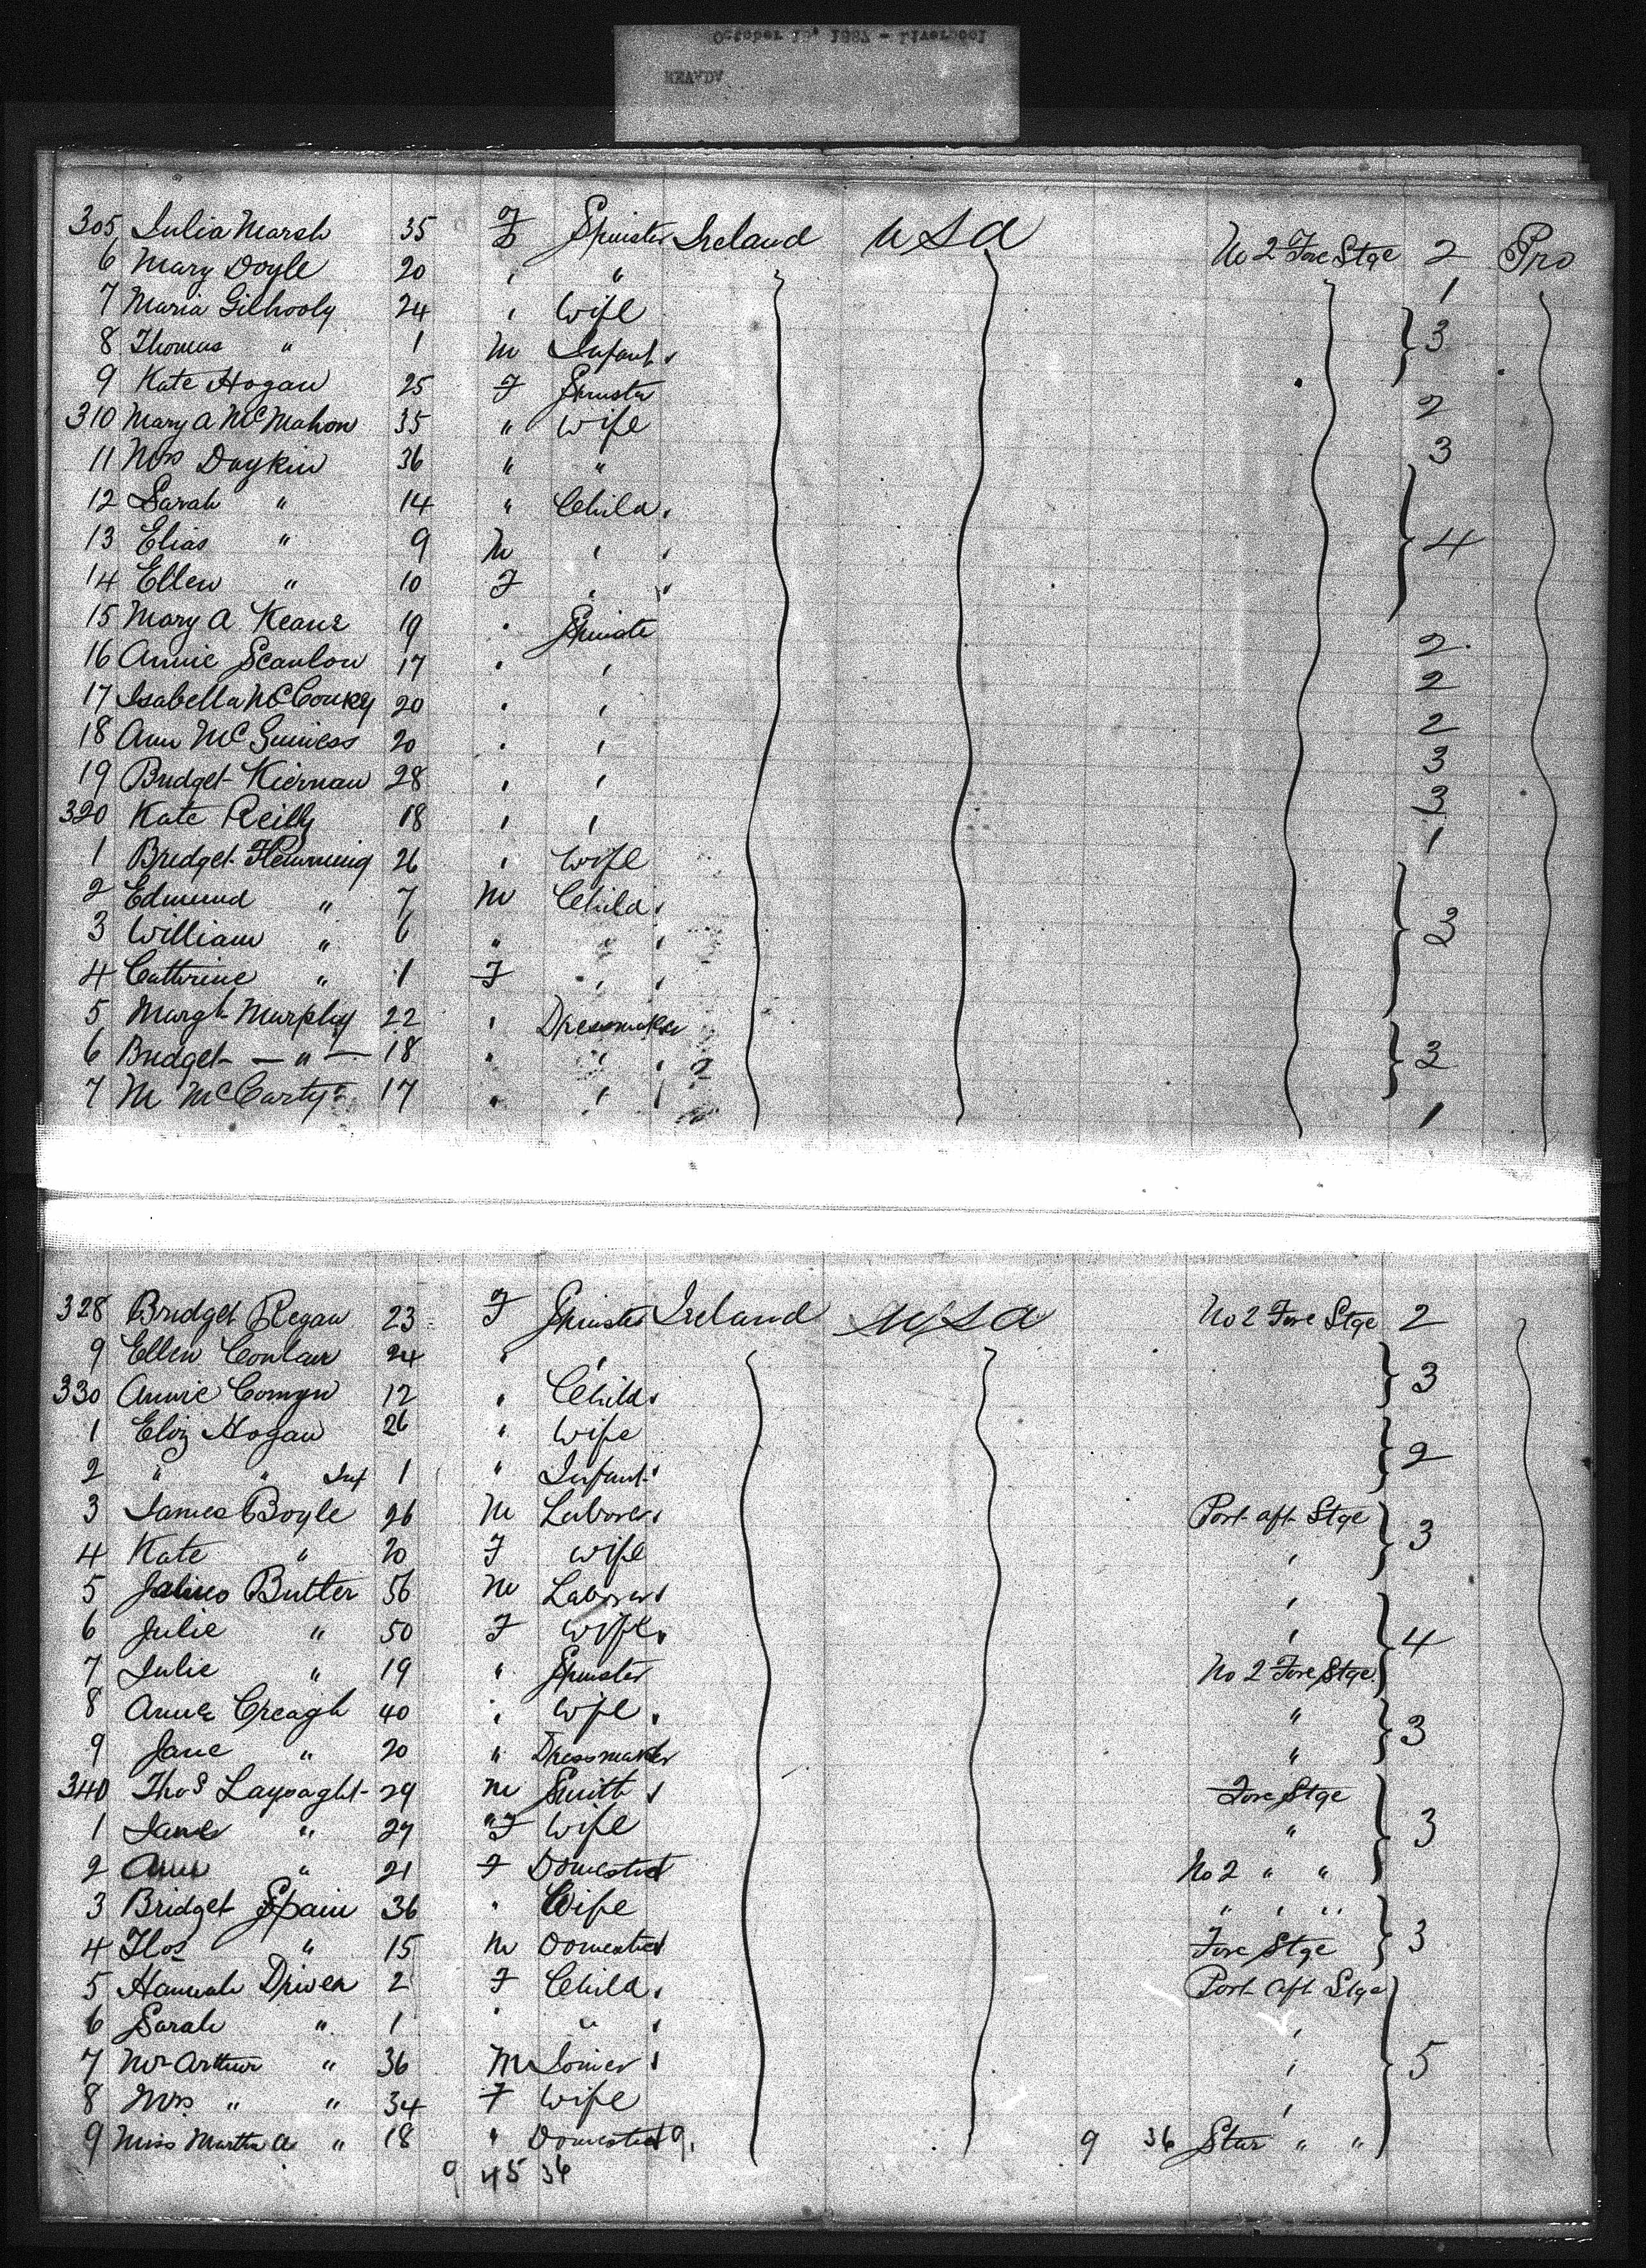 305 Julia Marsh 35 F Spinster Ireland U S A No 2 Fore Stge 2 Pro
6 Mary Doyle 20 " " 1
7 Maria Gilhooly 24 " Wife
8 Thomas " 1 M Infant 3
9 Kate Hogan 25 F Spinster 2
310 Mary A McMahon 35 " Wife 3
11 Mrs Daykin 36 " "
12 Sarah " 14 " Child
13 Elias " 9 M " 4
14 Ellen " 10 F "
15 Mary A Keane 19 " Spinster 2
16 Annie Scanlon 17 " " 2
17 Isabella McConkey 20 " " 2
18 Ann McGuiness 20 " " 3
19 Bridget Kiernan 28 " " 3
320 Kate Reilly 18 " " 1
1 Bridget Flemming 26 " Wife
2 Edmund " 7 M Child
3 William " 6 " " 3
4 Cathrine " 1 F "
5 Margt Murphy 22 " Dressmaker
6 Bridget — " — 18 " " 2 3
7 M McCarty 17 " " 1
328 Bridget Regan 23 F Spinster Ireland U S A No 2 Fore Stge 2
9 Ellen Conlan 24 " "
330 Annie Comyn 12 " Child 3
1 Eliz Hogan 26 " Wife
2 " " Inf 1 " Infant 2
3 James Boyle 26 M Laborer Port aft Stge
4 Kate " 20 F Wife " 3
5 James Butler 56 M Laborer "
6 Julie " 50 F Wife " 4
7 Julie " 19 " Spinster No 2 Fore Stge
8 Anne Creagh 40 " Wife "
9 Jane " 20 " Dressmaker " 3
340 Thos 29 M Smith Fore Stge
1 Jane " 27 F Wife " 3
2 Ann " 21 F Domestic No 2 " "
3 Bridget Spain 36 " Wife " " "
4 Thos " 15 M Domestic Fore Stge 3
5 Hannah Driver 2 F Child Port aft Stge
6 Sarah " 1 " " "
7 Mr Arthur " 36 M Joiner " 5
8 Mrs " " 34 F Wife "
9 Miss Martha A " 18 " Domestic 9 9 36 Star " "
9 45 36